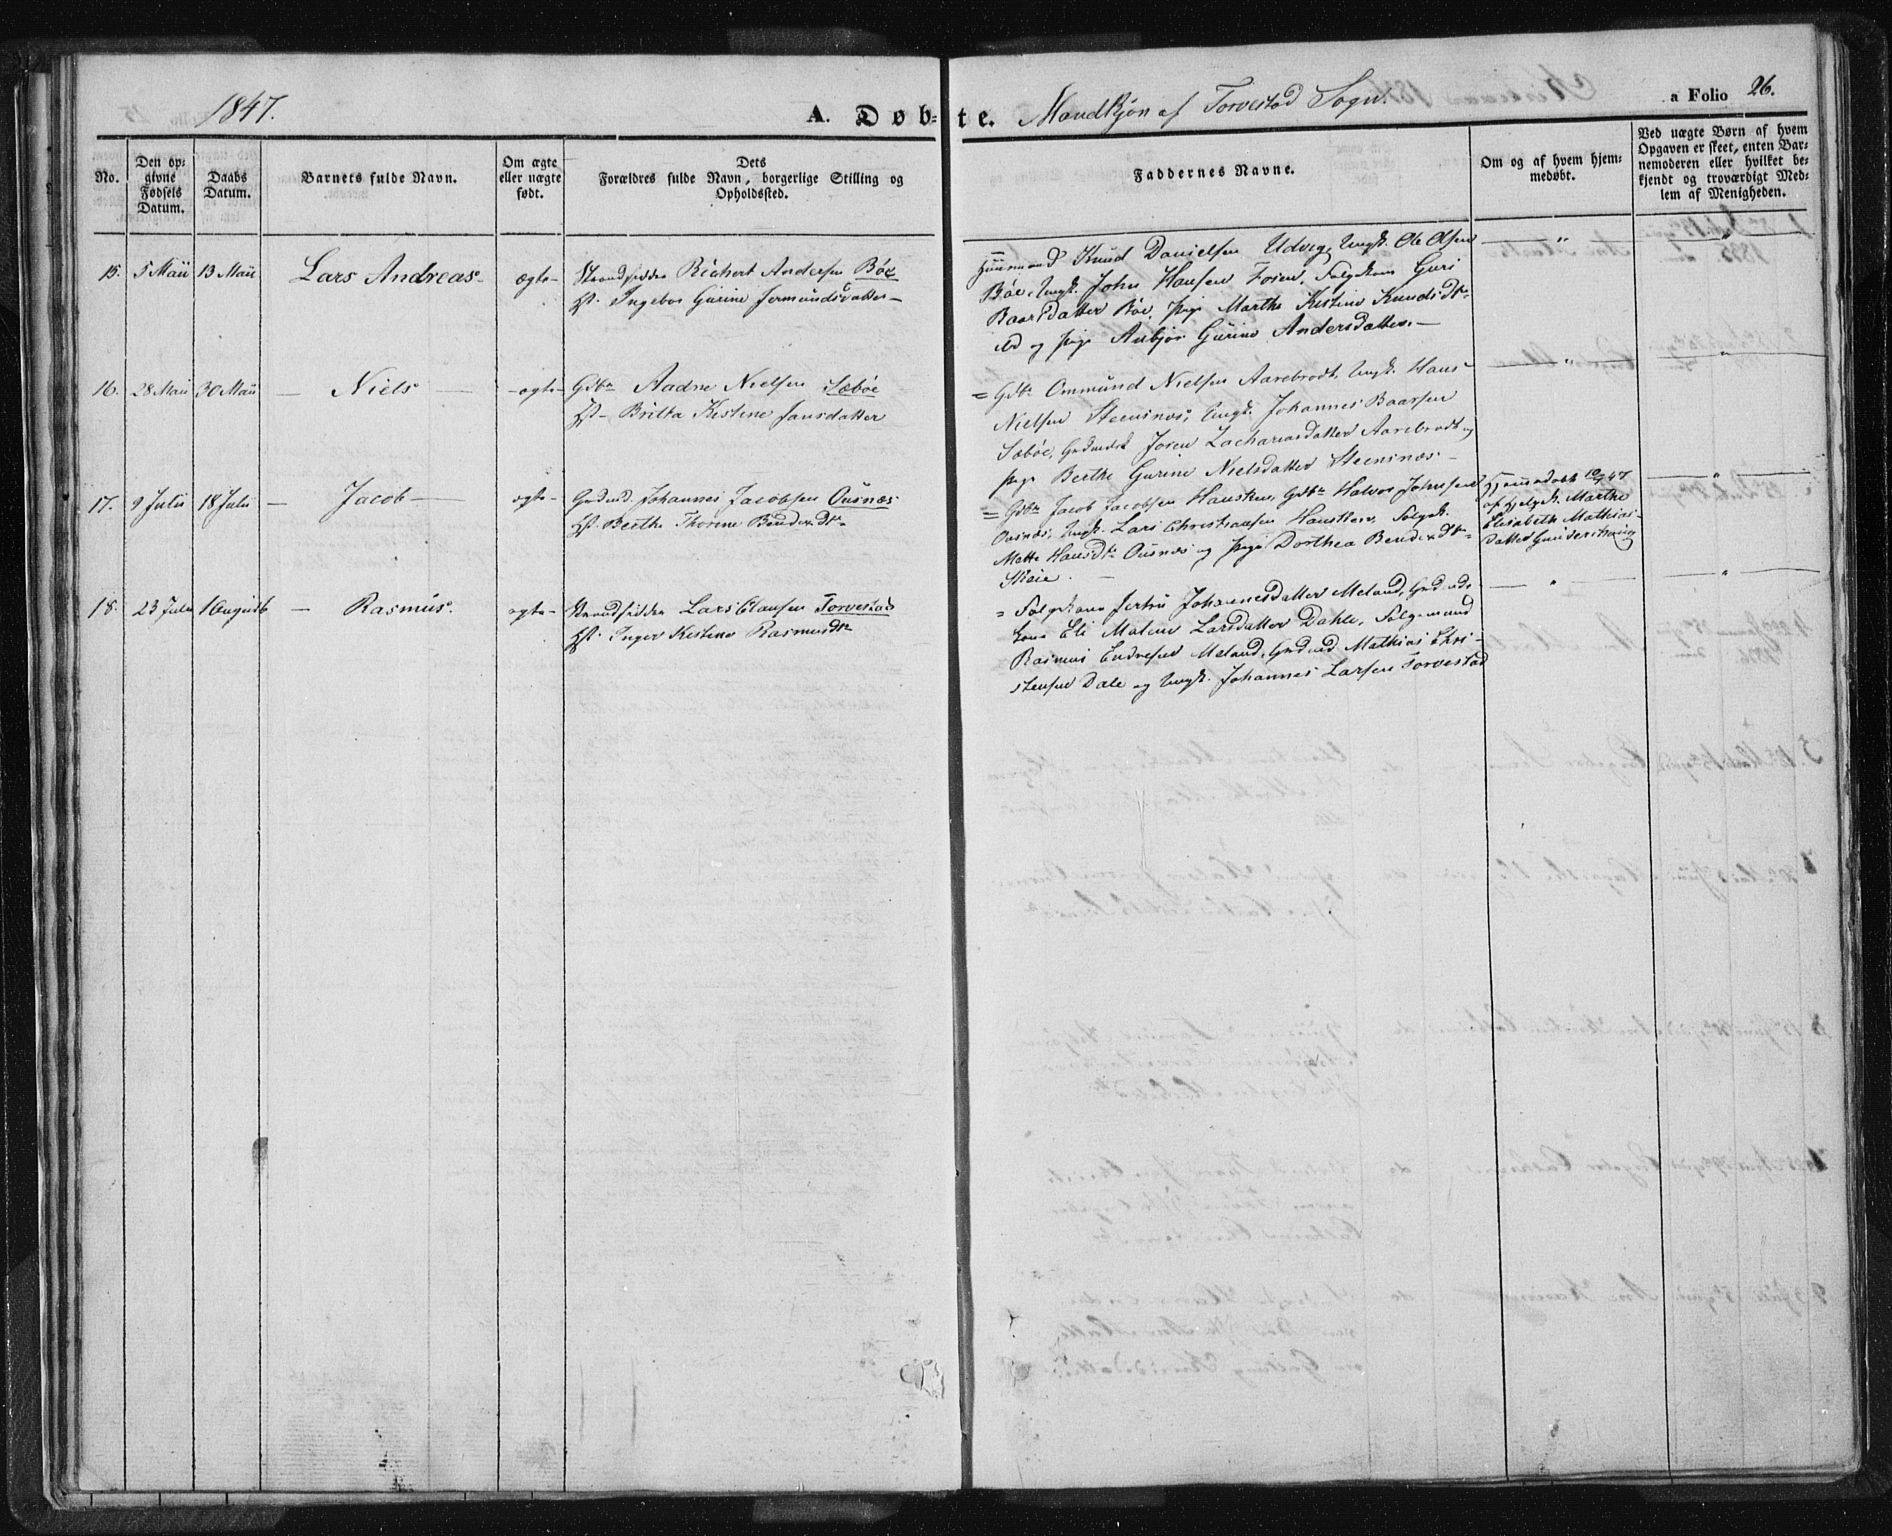 1847.
A. Døb- te. Mandkjøn af Torvestad Sogn.
a Folio 26.
No.
Den op-
givne
Fødsels
Datum.
Daabs
Datum.
Barnets fulde Navn.
Om ægte
eller uægte
født.
Dets
Forældres fulde Navn, borgerlige Stilling og
Opholdssted.
Faddernes Navne.
Om og af hvem hjem-
medøbt.
Ved uægte Børn af hvem
Opgaven er skeet, enten Bar-
nemoderen eller hvilket be-
kjendt og troværdigt Med-
lem af Menigheden.
15. 5 Maii 13 Maii Lars Andreas ægte Strandsidder Richert Andersen Bøe
H. Ingebor Gurine Jermundsdatter
Huusmand Knud Danielsen Udvig, Ungk. Ole Olsen
Bøe, Ungk. John Hansen Foren, Folgekone Guri
Baarsdatter Bøe, Pige Marthe Kistine Knudsdtr
og Pige Anbjør Gurine Andersdatter
16. 28 Maii 30 Maii Niels ægte Gdbr Aadne Nielsen Sæbøe
H. Britta Kistine Jansdatter
Gdbr Ommund Nielsen Aarebrodt, Ungk. Hans
Nielsen Steensnæs, Ungk. Johannes Baarsen
Sæbøe, Joren Zachariasdatter Aarebrodt og
Pige Berthe Gurine Nielsdatter Steensnæs
17. 9 Julii 18 Julii Jacob ægte Johannes Jacobsen Ousnæs
H. Berthe Thorine Bendixdtr
Gdbr Jacob Jacobsen Hausken, Gdbr Halvor Johnsen
Ousnæs, Ungk. Lars Christiansen Hausken, Folgek.
Mette Hansdtr Ousnæs og Pige Dorthea Bendixdtr
Skaie.
Hjemmedøbt 10/7 47
af Marthe
Elisabeth Mathias-
datter
18. 23 Julii 1 August Rasmus. ægte Strandsidder Lars Clausen Torvestad
H. Inger Kistine Rasmusdtr
Folgekone Jertru Johannesdatter Meland, Grdmds
kone Eli Malene Larsdatter Dahle, Folgemand
Rasmus Endresen Meland, Grdmd Mathias Chri-
stensen Dale og Ungk. Johannes Larsen Torvestad